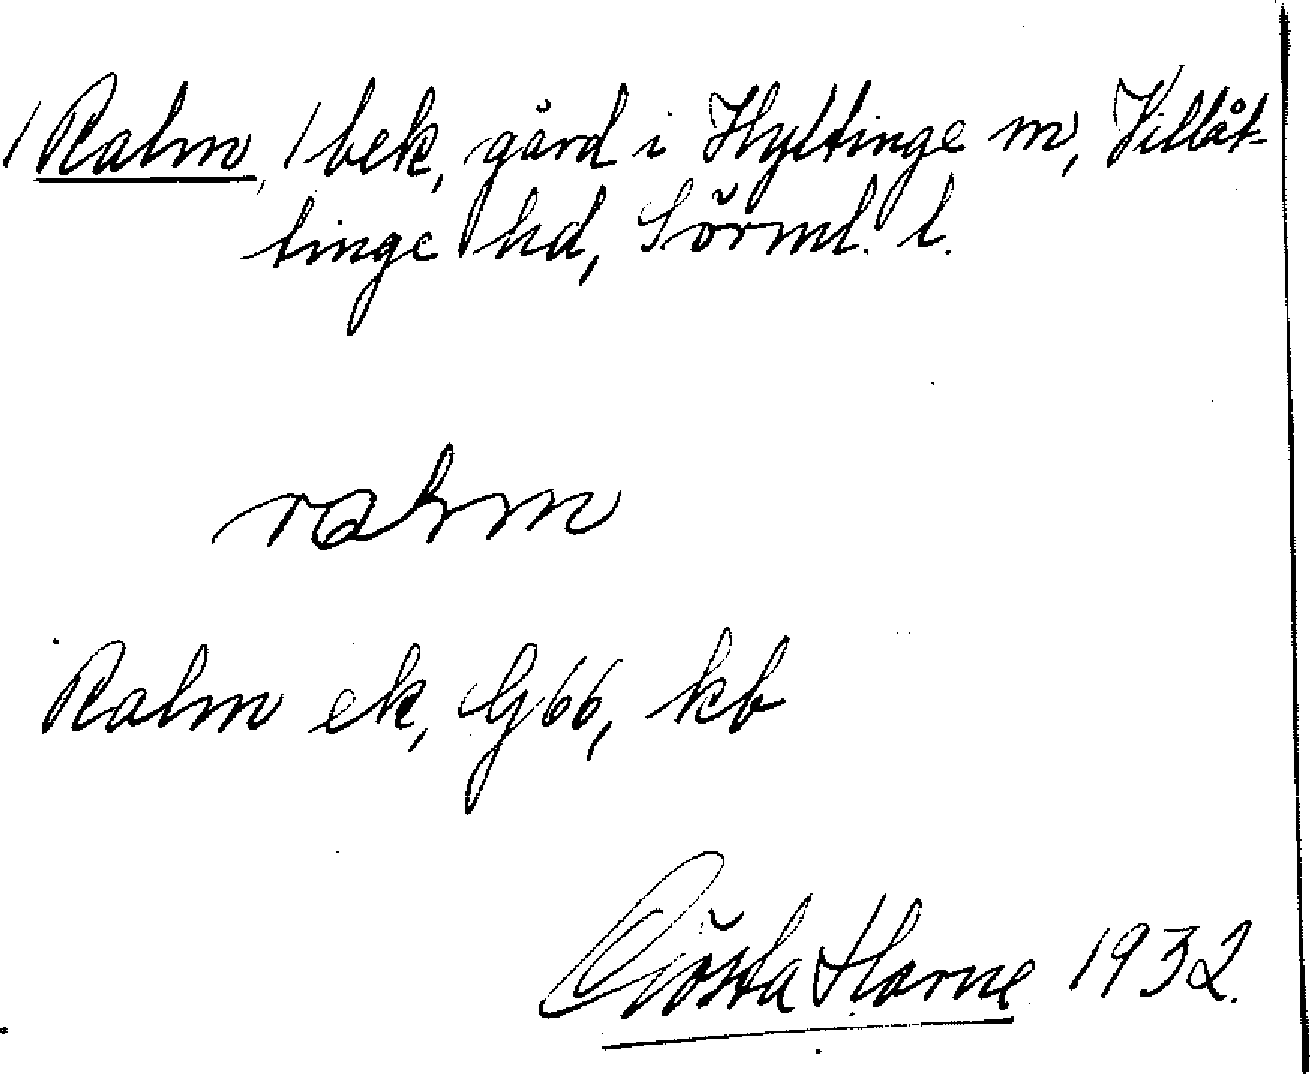 /Rahm, / bek, gård i Hyltinge sn, Villåt-
tinge hd, Sörml. l.
rahm
Rahm ek, G66, kb
Gösta Harne 1932.